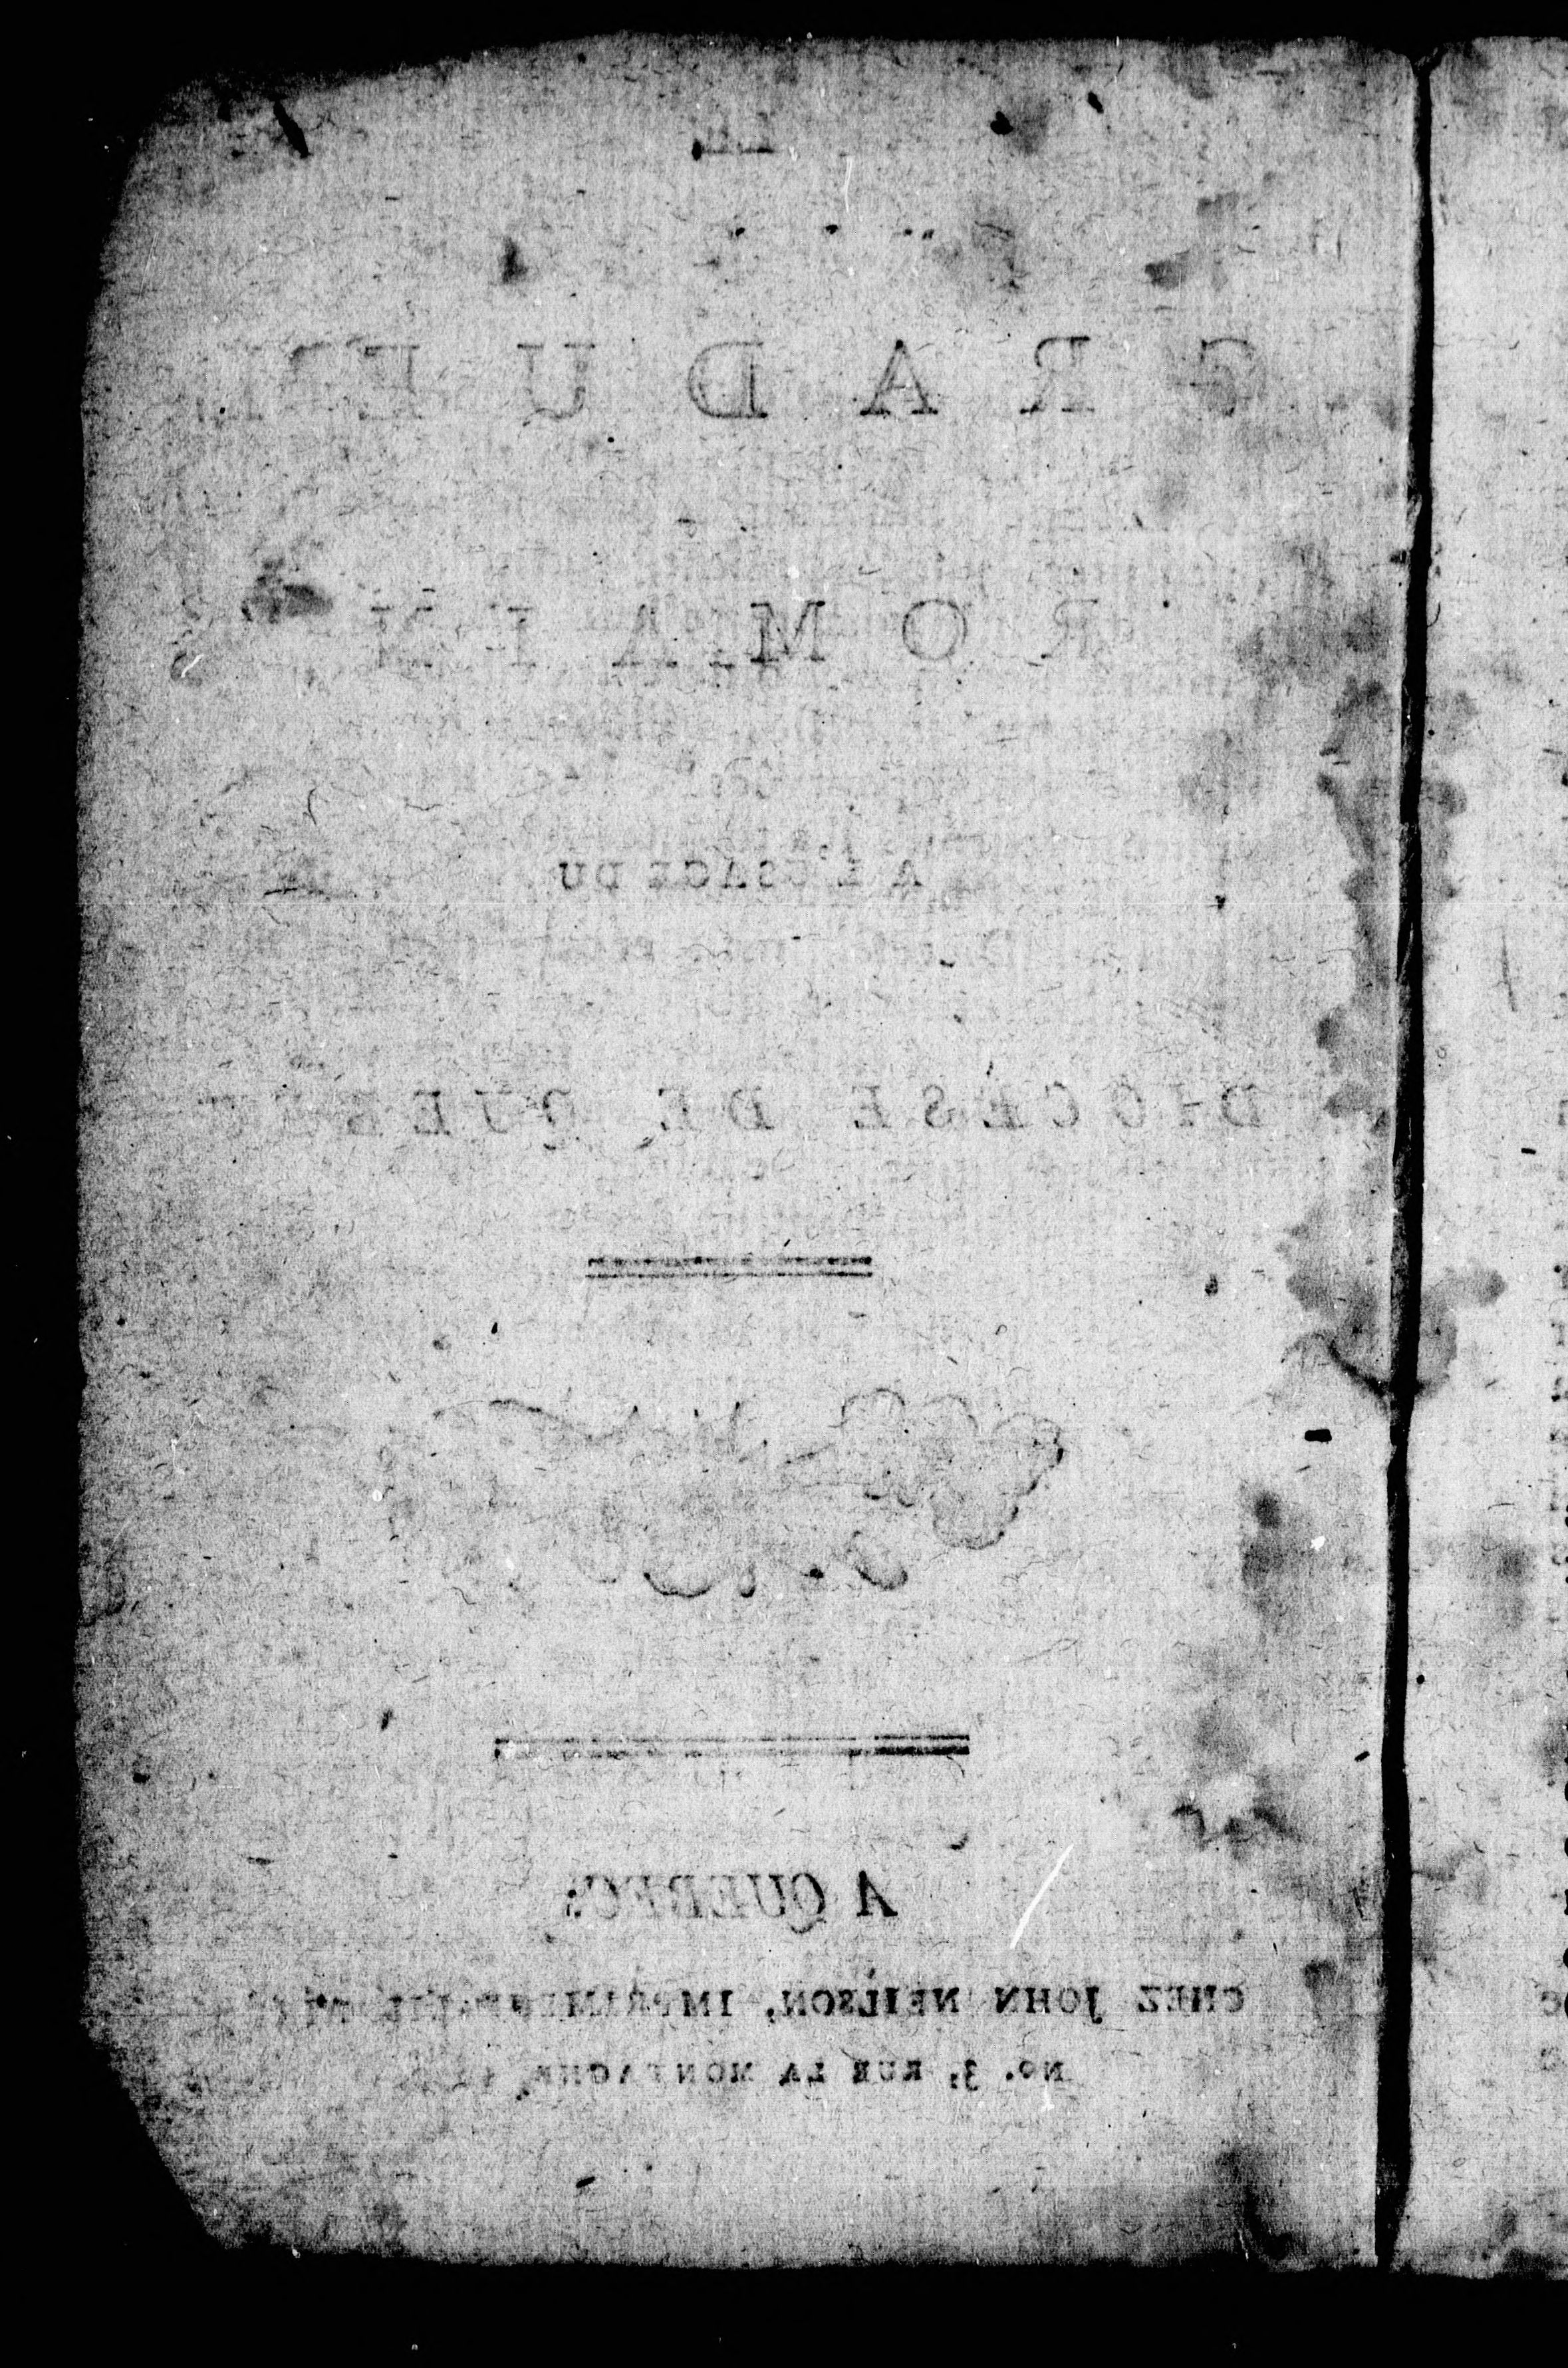 LE
GRADUEL
ROMAIN
A L'USAGE DU
DIOCESE DE QUEBEC
A QUEBEC:
CHEZ JOHN NEILSON, IMPRIMEUR
No. 3, RUE LA MONTAGNE,